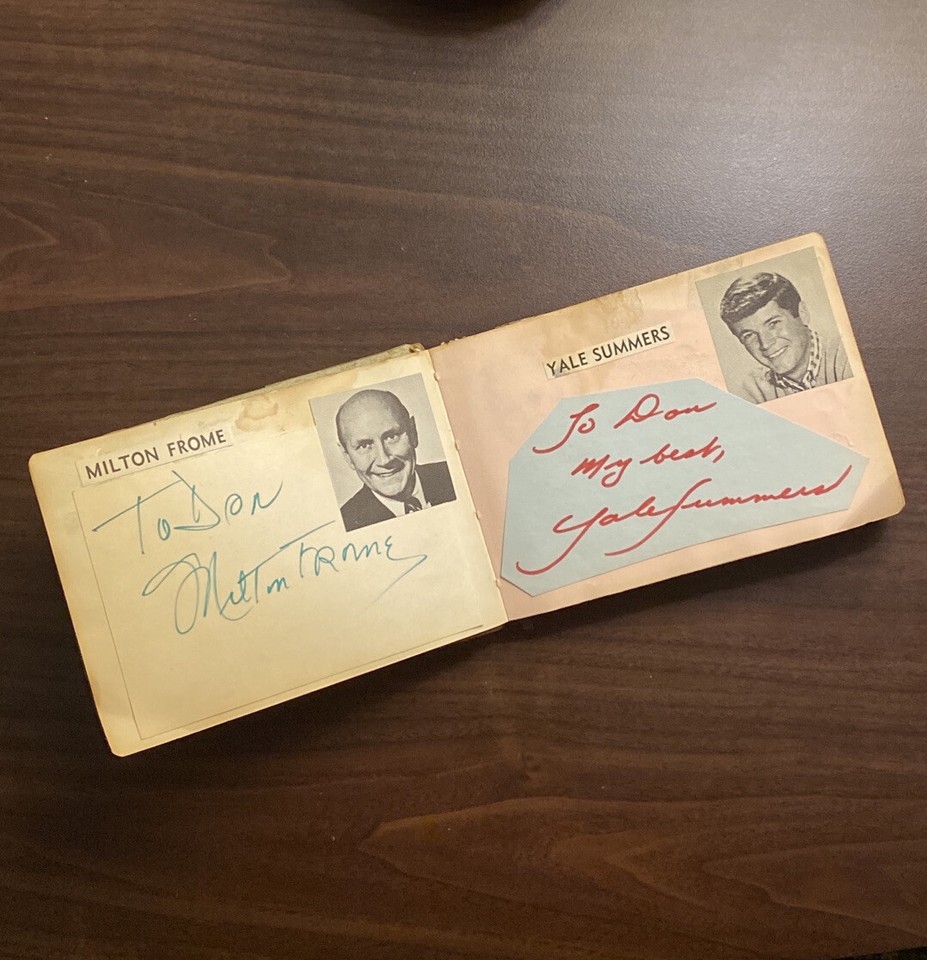 MILTON FROME
To Don
Milton Frome
YALE SUMMERS
To Don
My best,
Yale Summers